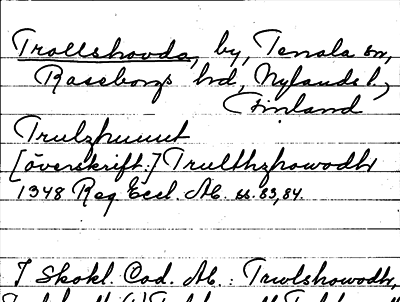 Trollshovda, by, Tenala sn,
Raseborgs hd, Nylands l.,
Finland
Trulzhuuut
[överskrift:] Trulthzhowodhr
1348 Reg. Eccl. Ab. ss. 83, 84.
I Skokl. Cod. Ab.: Trwlshowodhr,